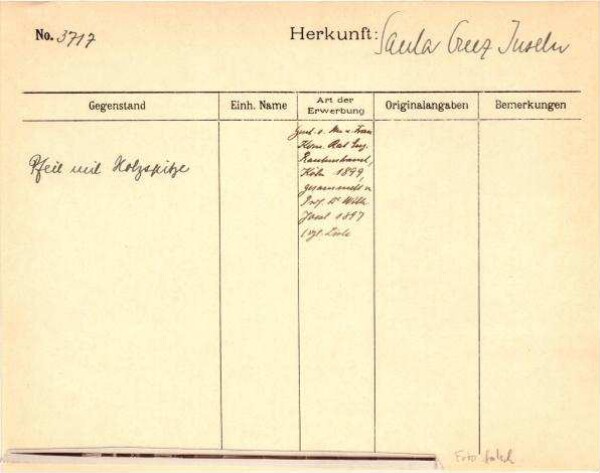 No. 3717
Herkunft: Santa Cruz Inseln
Gegenstand
Einh. Name
Art der Erwerbung
Originalangaben
Bemerkungen
Pfeil mit Holzspitze
Gesch. v. Hr. u. Frau
Kom. Rat Eug.
Rautenstrauch,
Köln 1899,
gesammelt v.
Prof. Dr Wilh.
Joest 1897
Foto falsch